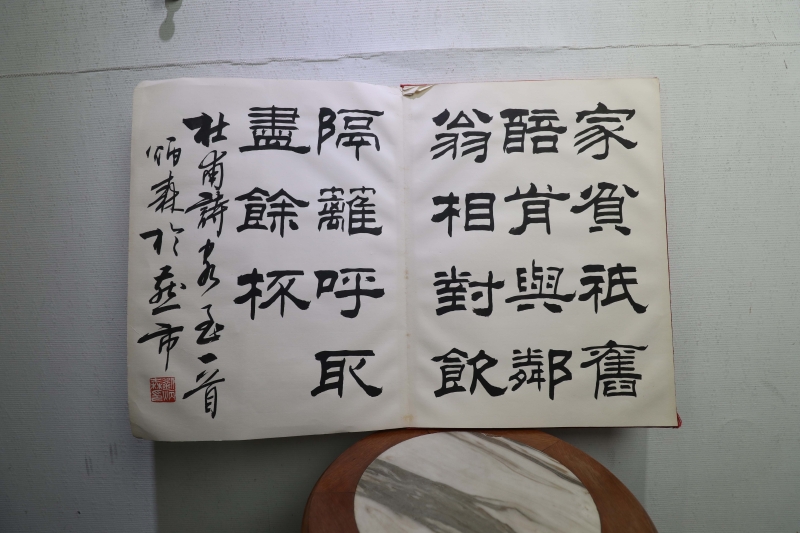 家貧祇舊
醅肯與鄰
翁相對飲
隔籬呼取
盡餘杯
杜甫詩客至一首
炳森於燕市